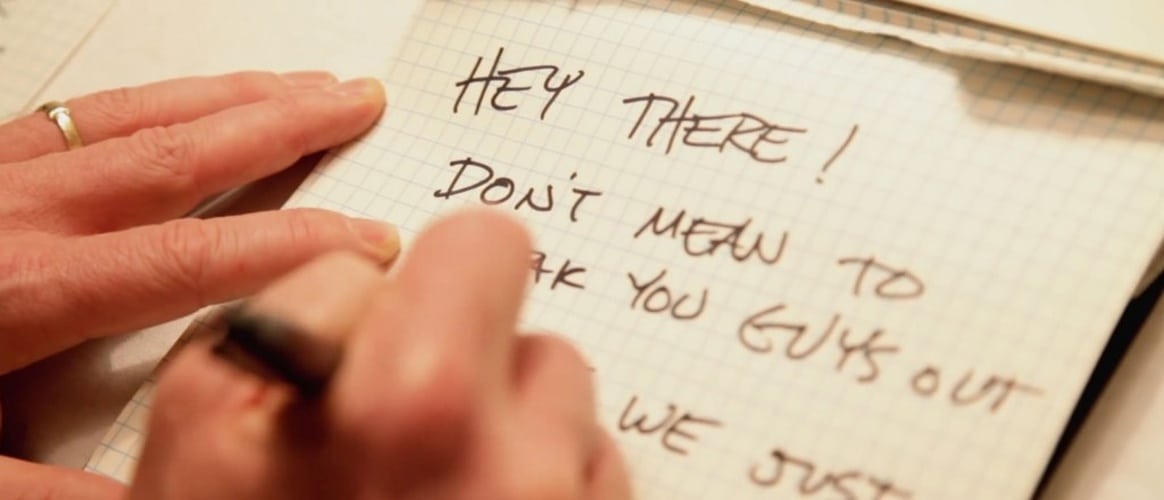 HEY THERE!
DON'T MEAN TO
YOU GUYS OUT
WE JUST